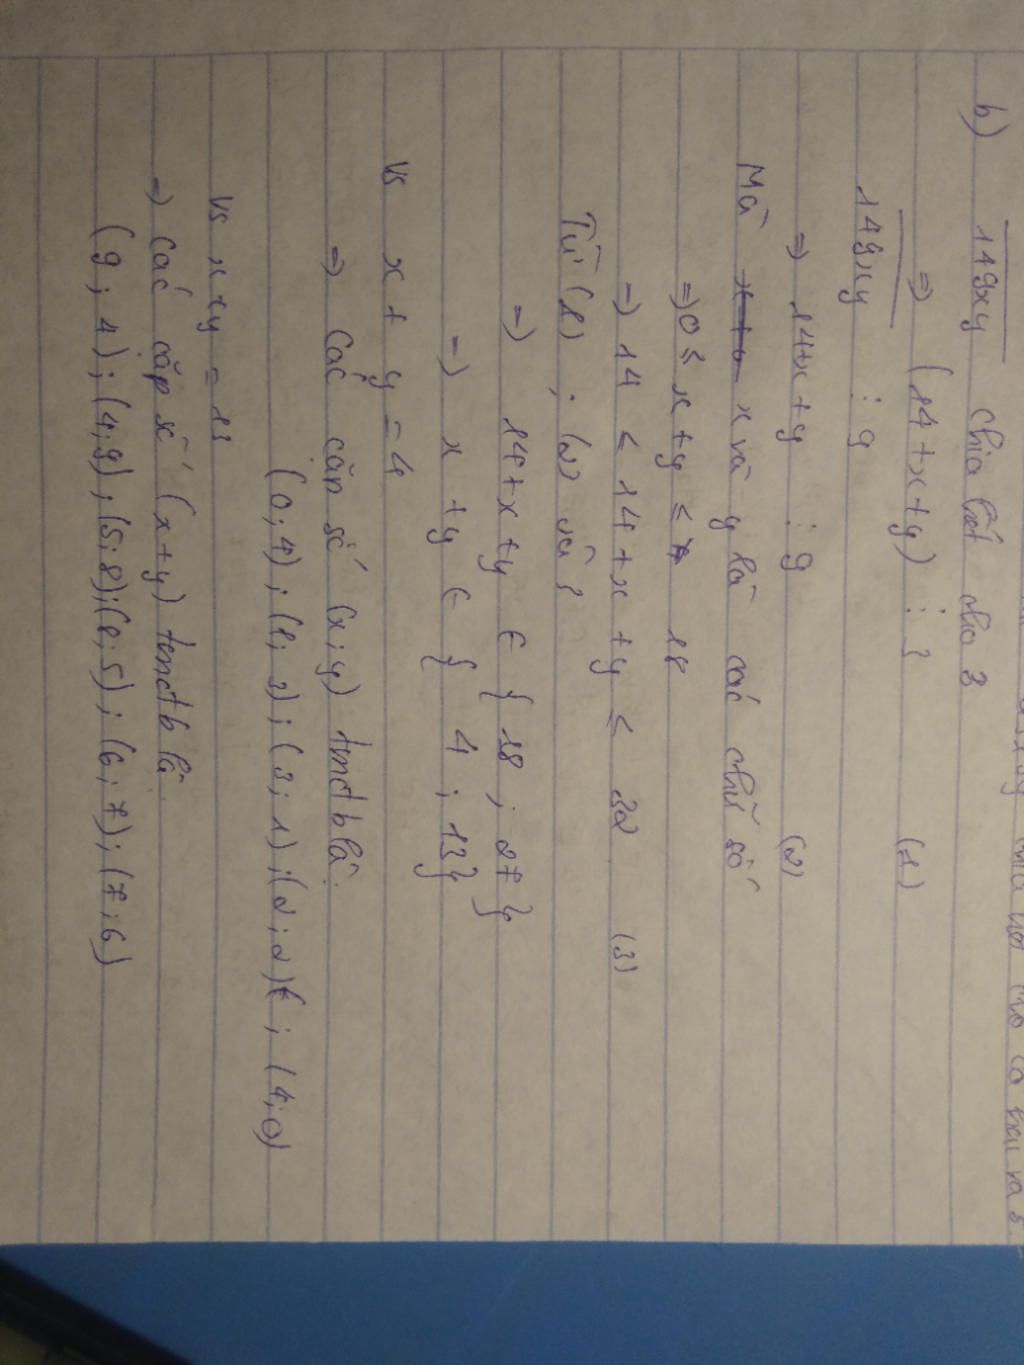 b) 149xy chia hết cho 3
=> (14+x+y) ⋮ 3 (1)
149xy ⋮ 9
=> 14+x+y ⋮ 9 (2)
Mà x và y là các chữ số
=> 0 ≤ x+y ≤ 18
=> 14 ≤ 14+x+y ≤ 32 (3)
Từ (1); (2) và 3
=> 14+x+y ∈ {18; 27}
=> x+y ∈ {4; 13}
Vs x+y=4
=> Các cặp số (x;y) tmđtb là:
(0;4); (1;3); (3;1); (2;2); (4;0)
Vs x+y=13
=> Các cặp số (x+y) tmđtb là
(9;4); (4;9); (5;8); (8;5); (6;7); (7;6)